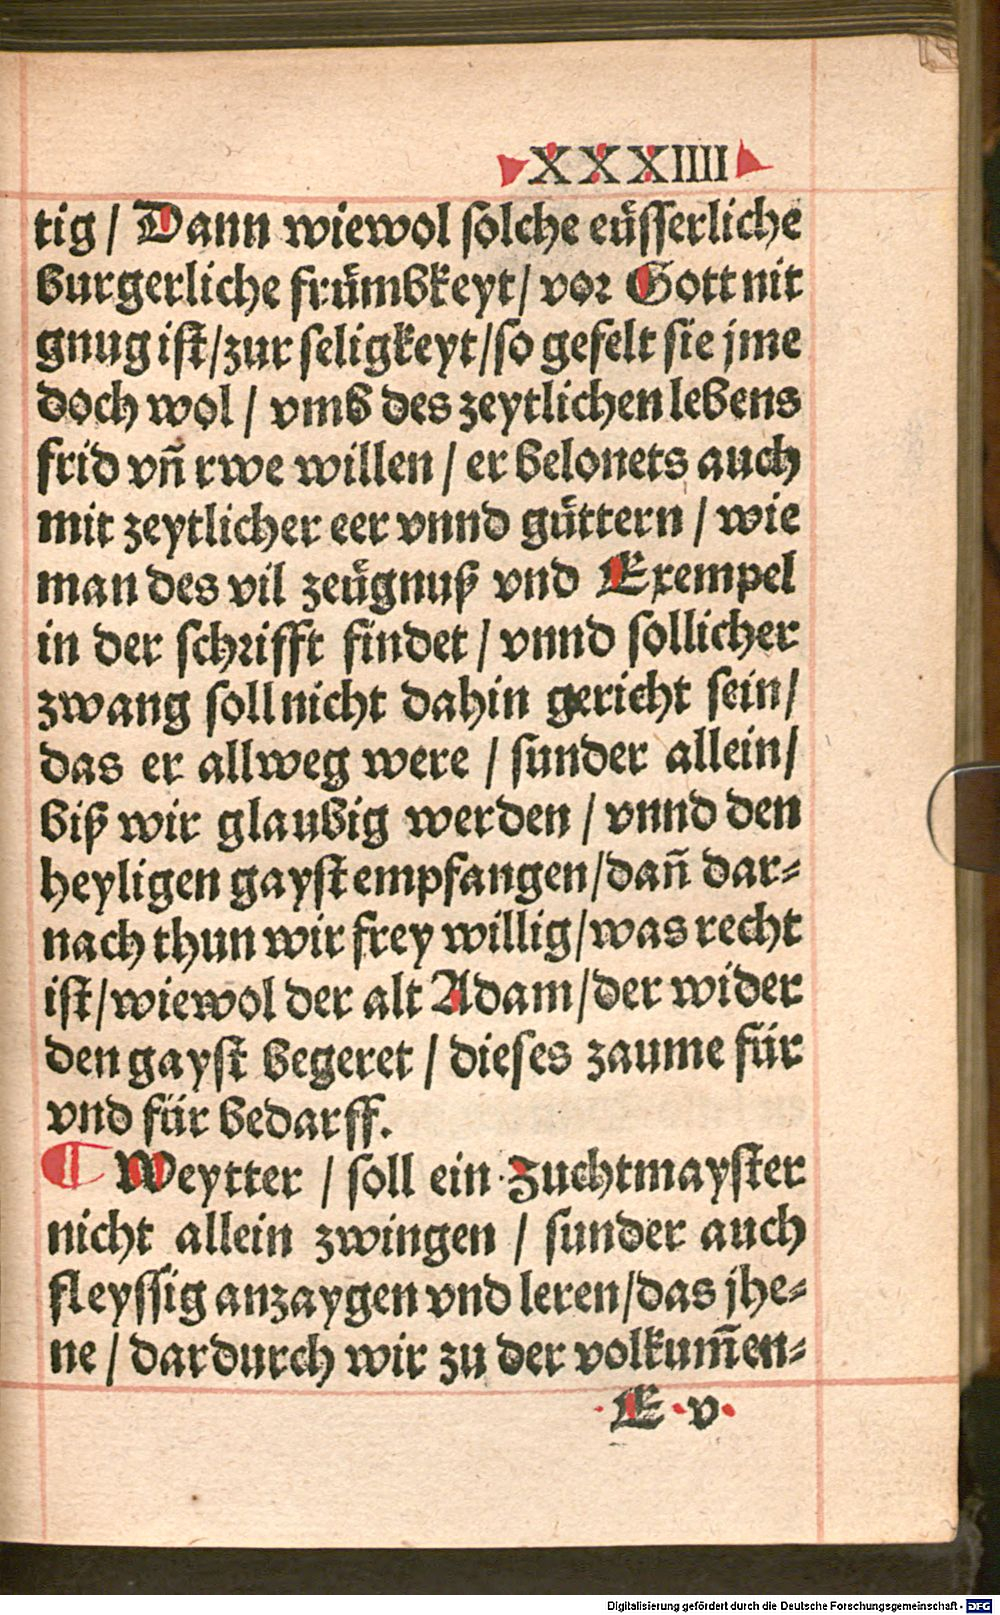 XXXIIII
tig / Dann wiewol solche eüsserliche
burgerliche frümbkeyt / vor Gott nit
gnug ist / zur seligkeyt / so gefelt sie jme
doch wol / vmb des zeytlichen lebens
frid vñ rwe willen / er belonets auch
mit zeytlicher eer vnnd güttern / wie
man des vil zeügnuß vnd Exempel
in der schrifft findet / vnnd sollicher
zwang soll nicht dahin gericht sein /
das er allweg were / sunder allein /
biß wir glaubig werden / vnnd den
heyligen gayst empfangen / dañ dar=
nach thun wir frey willig / was recht
ist / wiewol der alt Adam / der wider
den gayst begeret / dieses zaume für
vnd für bedarff.
¶ Weytter / soll ein Zuchtmayster
nicht allein zwingen / sunder auch
fleyssig anzaygen vnd leren / das jhe=
ne / dardurch wir zu der volkum̃en=
E v
Digitalisierung gefördert durch die Deutsche Forschungsgemeinschaft - DFG